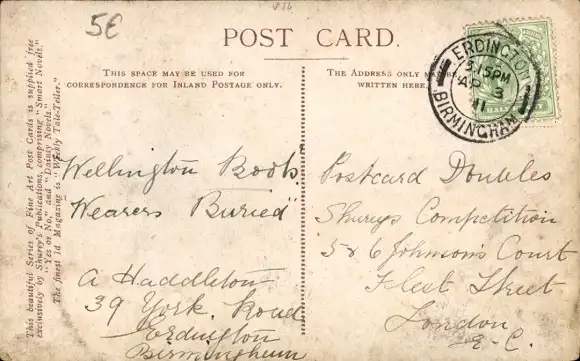 5€
V16
POST CARD.
THIS SPACE MAY BE USED FOR
CORRESPONDENCE FOR INLAND POSTAGE ONLY.
THE ADDRESS ONLY
WRITTEN HERE
ERDINGTON
5.15PM
AP 3
11
BIRMINGHAM
HALF
This beautiful Series of Fine Art Post Cards is supplied free
exclusively by Shurey's Publications, comprising "Smart Novels,"
"Yes or No," and "Dainty Novels."
The finest 1d. Magazine is "Weekly Tale-Teller."
Wellington Boots
Wearers Buried"
A Haddleton
39 York Road
Erdington
Birmingham
Postcard Doubles
Shureys Competition
5 & 6 Johnson's Court
Fleet Street
London
E.C.